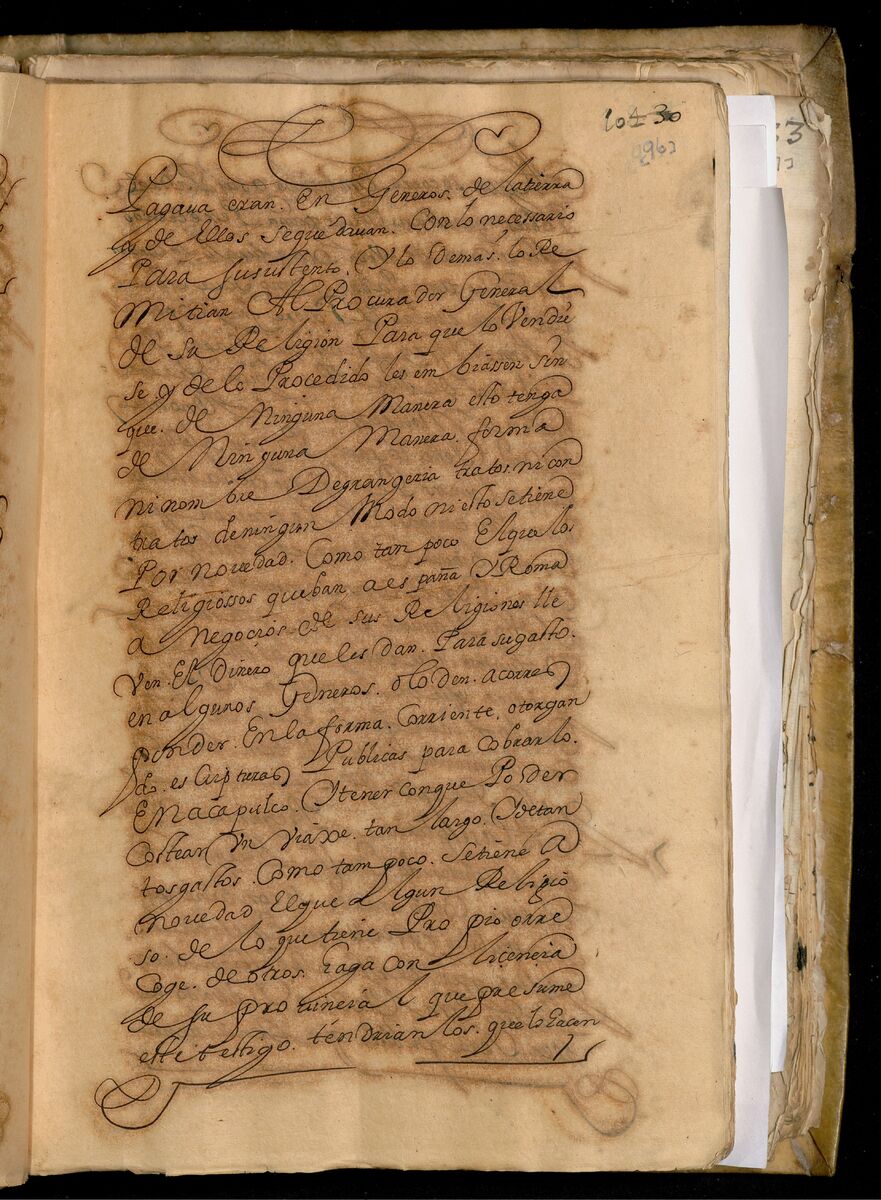 104 30
963
Pagaua eran. En Generos. de latierra
y de Ellos sequedauan. Con lo necessario
Para susustento. Y lo demas. lo Re
Mitian Al Procurador General
de su Religion Para que lo Vendie
se. y de lo Procedido les embiassen sin
que. de Ninguna Manera esto tenga
de Ninguna Manera. forma
ni nombre Degrangeria tratos ni con
tratos deningun Modo ni esto setiene
Por novedad. Como tampoco Elque los
Religiossos queban. aespaña Y Roma
a Negocios de sus Religiones lle
Ven. El Dinero que les dan. Para sugasto.
en algunos Generos. o lo den. acorres
ponder. En la forma. Corriente, otorgan
do. escripturas Publicas para Cobrarlo.
En acapulco. Y tener conque Poder
Costear Un Viaxe. tan largo. Y detan
tos gastos. Como tampoco. Setiene A
novedad Elque Algun Religio
so. de lo que tiene Propio o rre
Coge. de otros. haga con licencia
de su Prouincial que presume
este testigo. tendrian los. que lo hacen